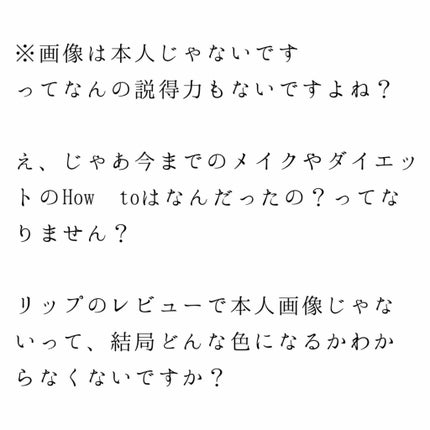 ※画像は本人じゃないです
ってなんの説得力もないですよね？
え、じゃあ今までのメイクやダイエッ
トのHow　toはなんだったの？ってな
りません？
リップのレビューで本人画像じゃな
いって、結局どんな色になるかわか
らなくないですか？